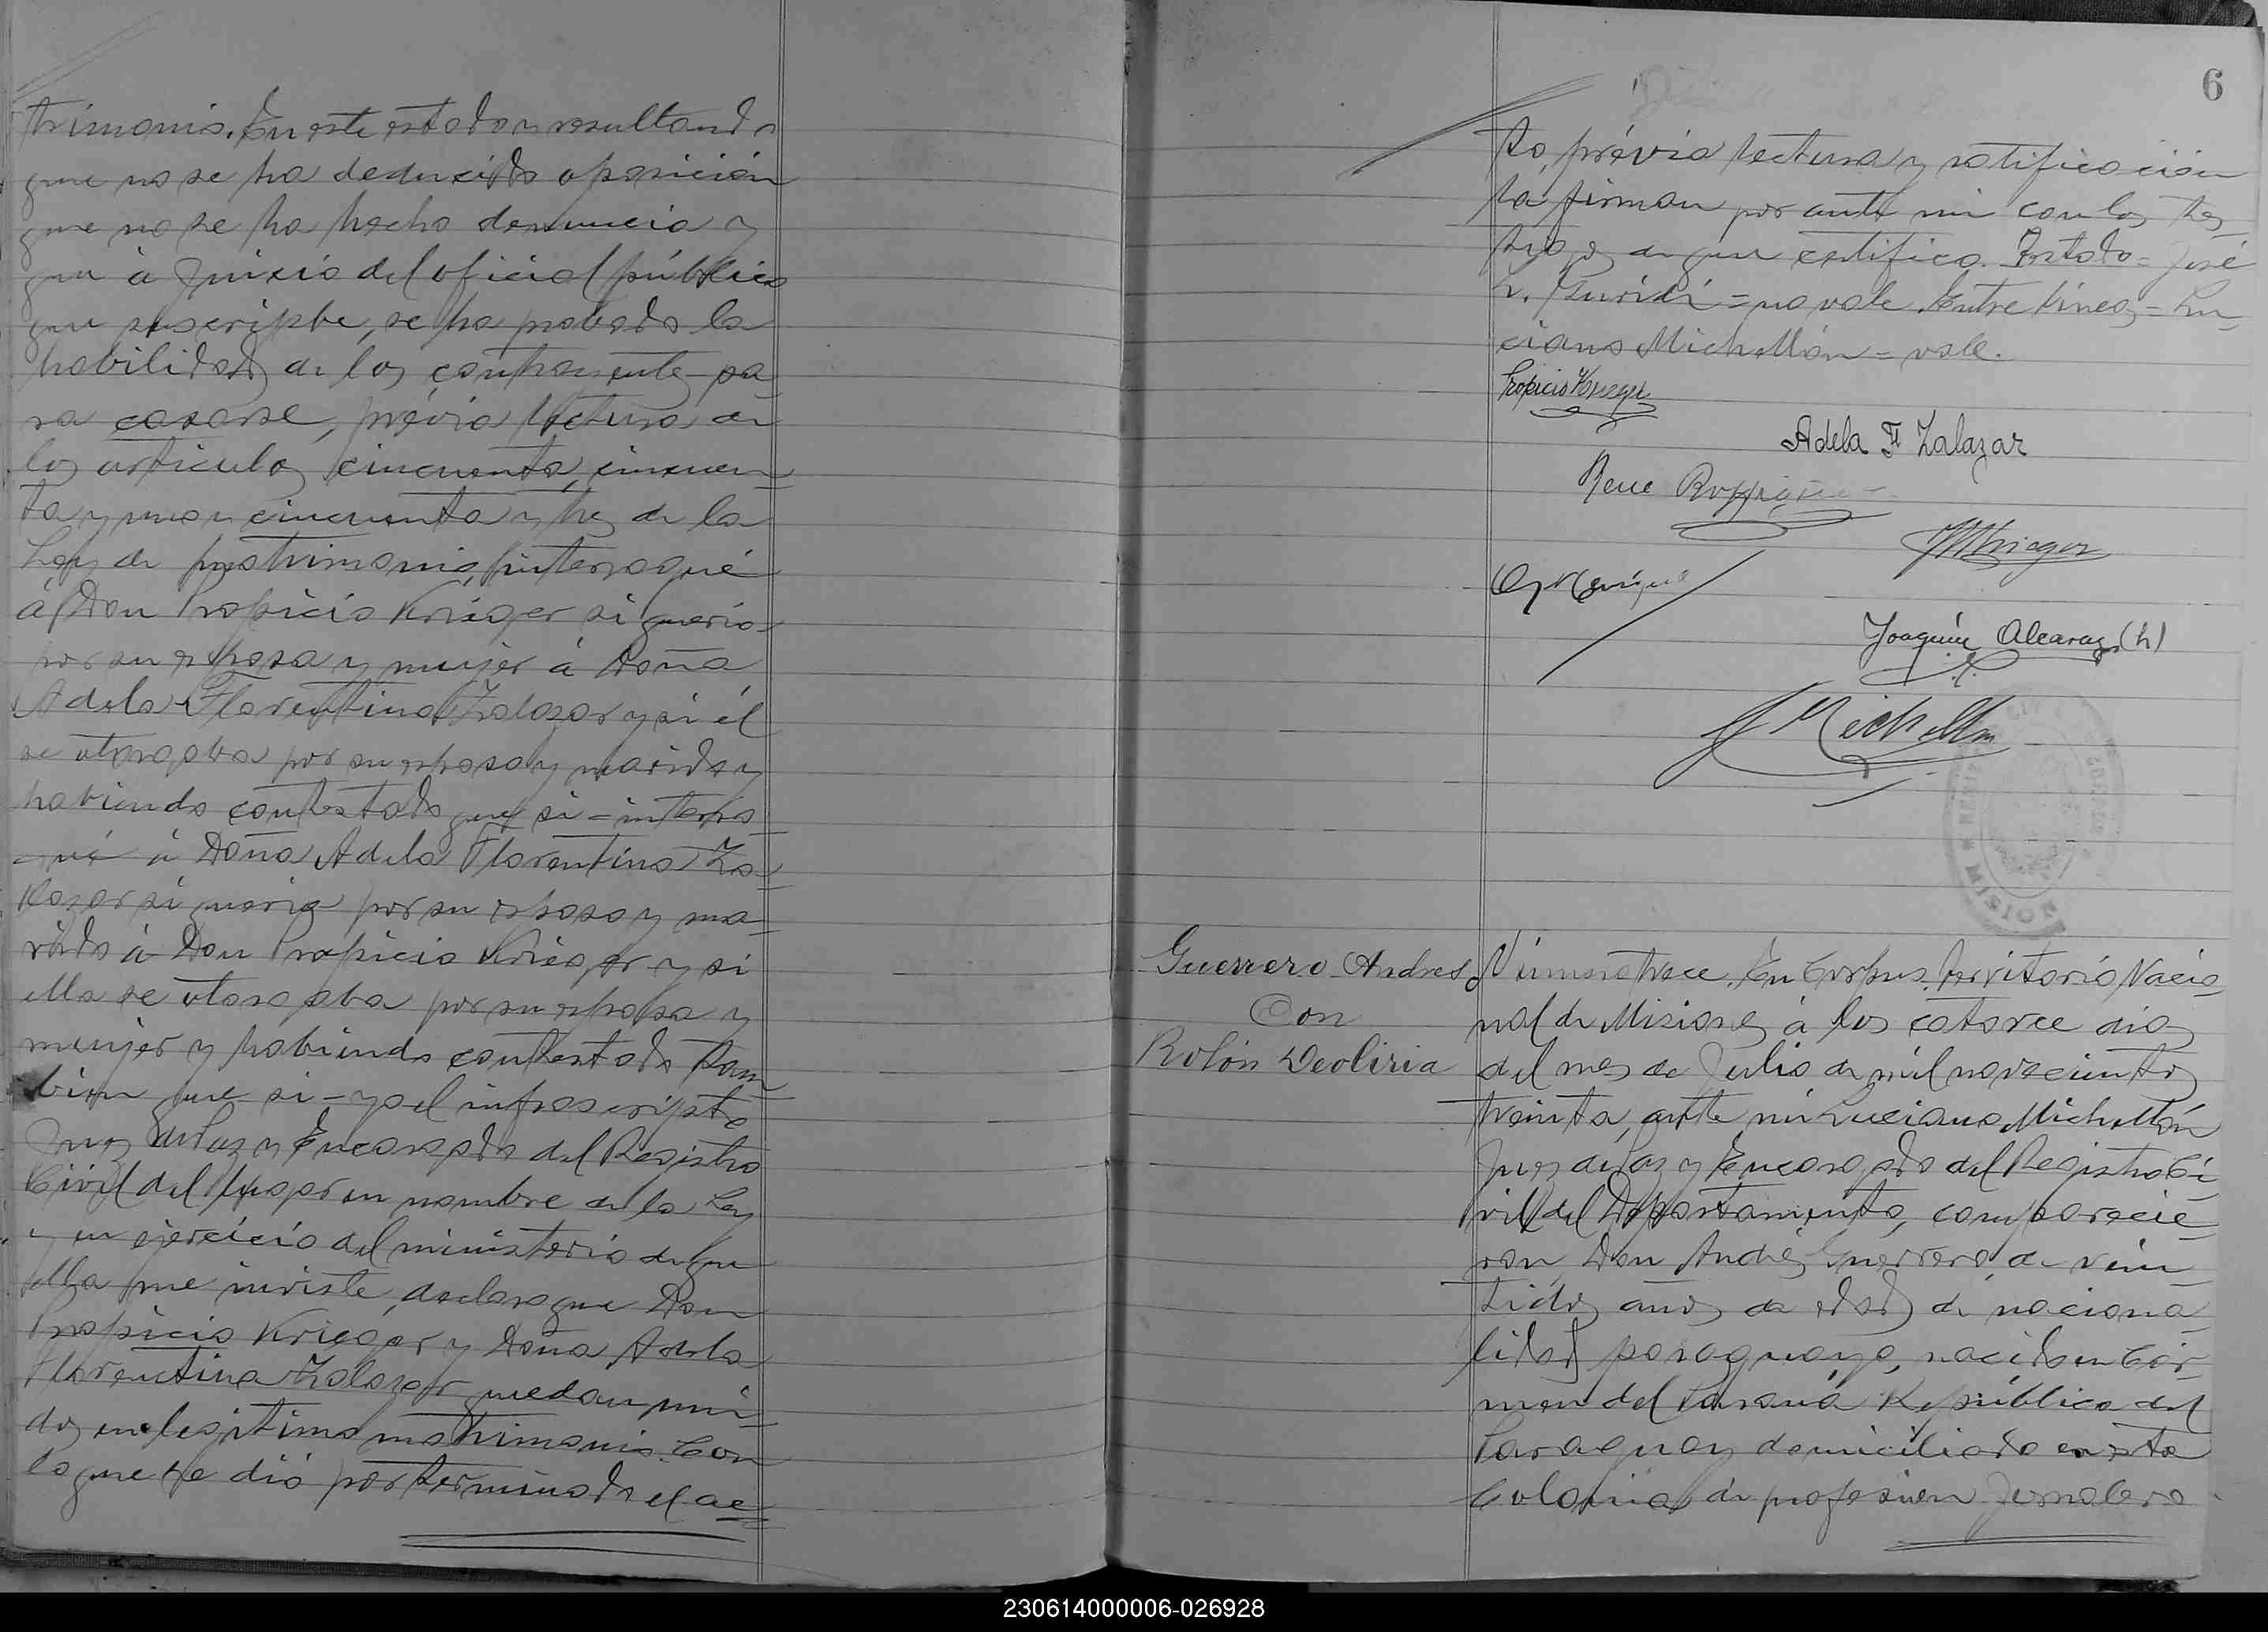 trimonio. En este estado y resultando
que no se ha deducido oposición
que no se ha hecho denuncia y
que à juicio del oficial público
que suscripbe, se ha probado la
habilidad de los contrayentes pa-
ra casarse, prévia lectura de
los artículos cincuenta, cincuen-
ta y uno y cincuenta y tres de la
Ley de matrimonio, interrogué
á Don Propicio Krieger si queria
por su esposa y mujer à Doña
Adela Florentina Zalazar y si él
se otorgaba por su esposo y marido y
habiendo contestado que si = interro-
gué à Doña Adela Florentina Za-
lazar si queria por su esposo y ma-
rido à Don Propicio Krieger y si
ella se otorgaba por su esposa y
mujer y habiendo contestado tam-
bien que si - yo el infrascripto
Juez de Paz y Encargado del Registro
Civil del lugar en nombre de la Ley
y en ejercicio del ministerio de que
ella me inviste, declaro que Don
Propicio Krieger y Doña Adela
Florentina Zalazar quedan uni-
dos en legitimo matrimonio. Con
lo que se dió por terminado el ac-
6
to, prévia lectura y ratificación
la firman por ante mi con los tes-
tigos de que certifico. Testado = José
L. = no vale. Entre lineas = Lu-
ciano Michellón = vale.
Propicio Krieger
Adela F Zalazar
Rene
Krieger
Joaquín Alcaraz (h)
L Michellón
MISIONES
Guerrero Andres
Con
Rolón Deoliria
Número trece. En Corpus. Territorio Nacio-
nal de Misiones à los catorce dias
del mes de Julio de mil novecientos
treinta, ante mi Luciano Michellón
Juez de Paz y Encargado del Registro Ci-
vil del Departamento, comparecie-
ron Don Andrés Guerrero, de vein-
tidós años de edad, de naciona-
lidad paraguayo, nacido en Cár-
men del Paraná República del
Paraguay domiciliado en esta
Colonia de profesion Jornalero
230614000006-026928